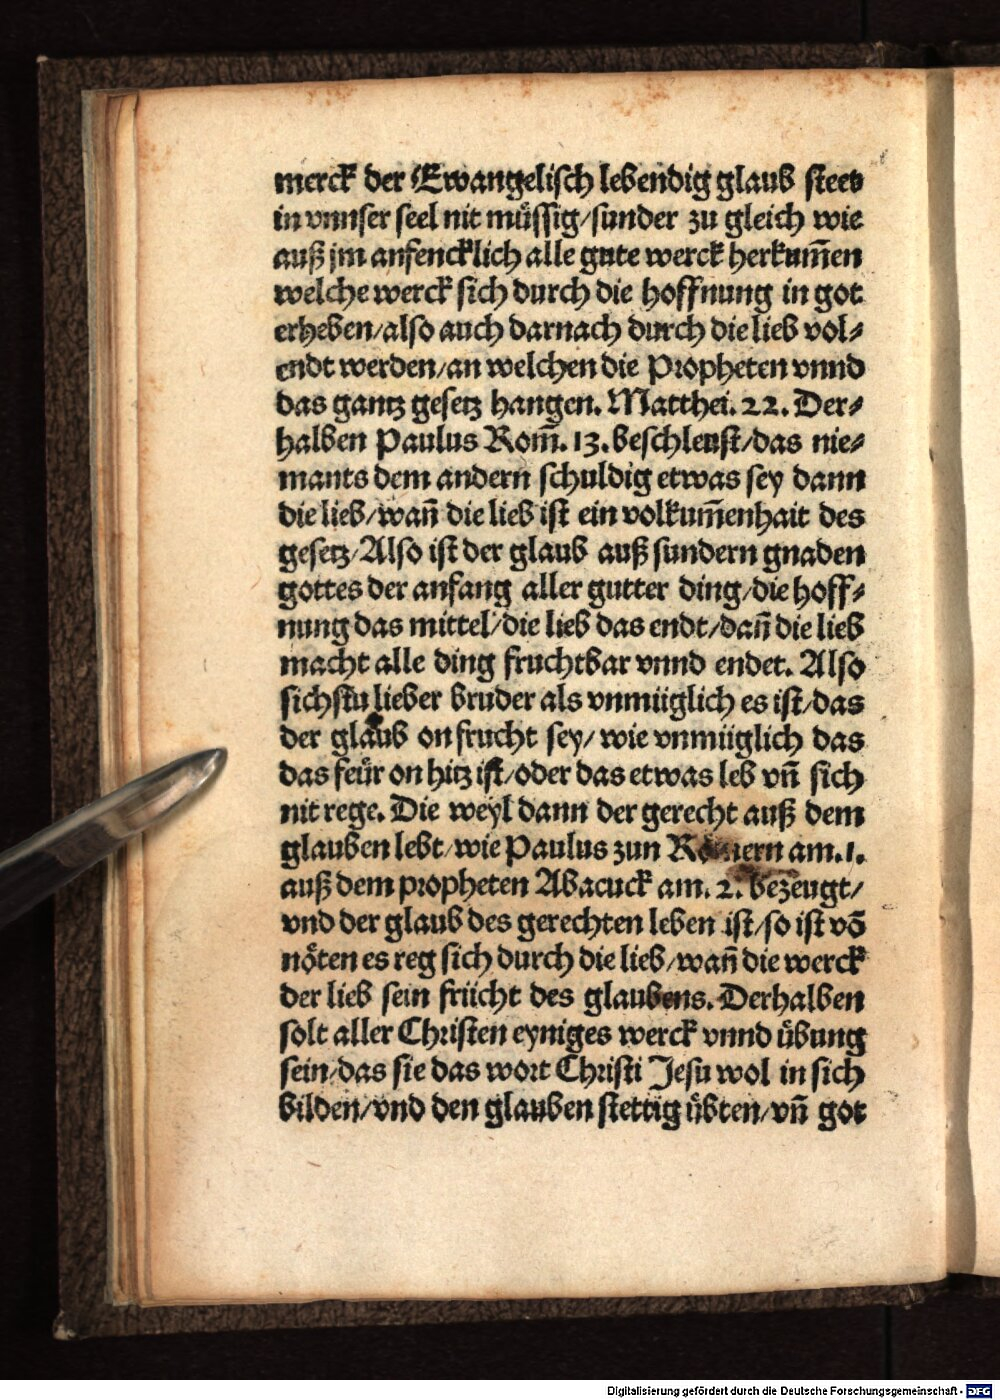 merck der Ewangelisch lebendig glaub steet
in vnnser seel nit müssig/sunder zu gleich wie
auß jm anfencklich alle gute werck herkum̄en
welche werck sich durch die hoffnung in got
erheben/also auch darnach durch die lieb vol⸗
endt werden/an welchen die Propheten vnnd
das gantz gesetz hangen. Matthei. 22. Der⸗
halben Paulus Rom̄. 13. beschleust/das nie⸗
mants dem andern schuldig etwas sey dann
die lieb/wan̄ die lieb ist ein volkum̄enhait des
gesetz/Also ist der glaub auß sundern gnaden
gottes der anfang aller gutter ding/die hoff⸗
nung das mittel/die lieb das endt/dan̄ die lieb
macht alle ding fruchtbar vnnd endet. Also
sichstu lieber bruder als vnmüglich es ist/das
der glaub on frucht sey/wie vnmüglich das
das feür on hitz ist/oder das etwas leb vn̄ sich
nit rege. Die weyl dann der gerecht auß dem
glauben lebt/wie Paulus zun Römern am. 1.
auß dem propheten Abacuck am. 2. bezeugt/
vnd der glaub des gerechten leben ist/so ist vō
nöten es reg sich durch die lieb/wan̄ die werck
der lieb sein frücht des glaubens. Derhalben
solt aller Christen eyniges werck vnnd übung
sein/das sie das wort Christi Jesu wol in sich
bilden/vnd den glauben stettig übten/vn̄ got
Digitalisierung gefördert durch die Deutsche Forschungsgemeinschaft - DFG